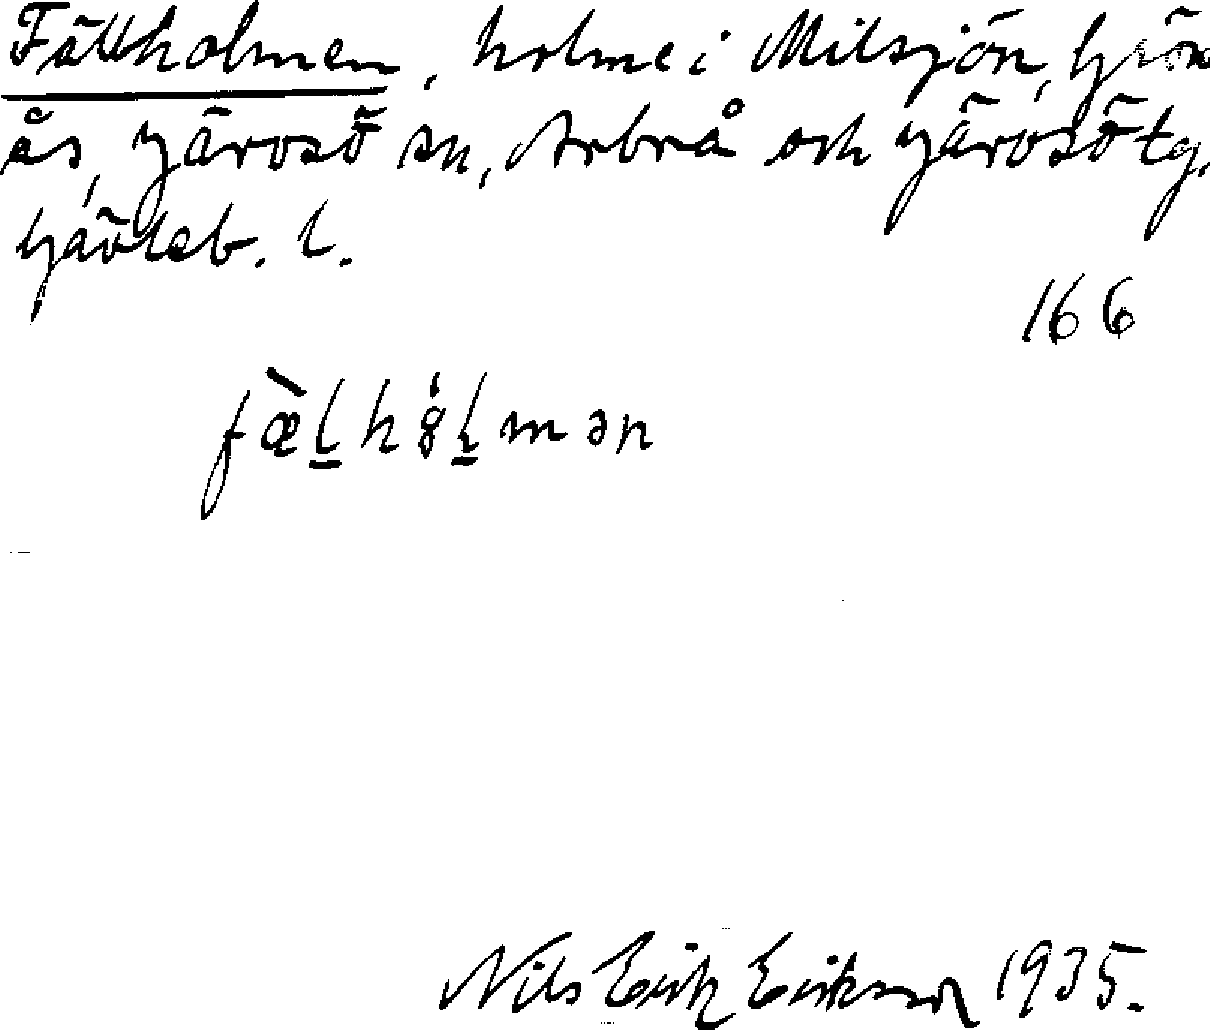 Fällholmen, holme i Milsjön, Grön
ås, Järvsö sn, Arbrå och Järvsö tg,
Gävleb. l.
166
fæ̀l̲hól̲mən
Nils Erik Eriksson 1935.